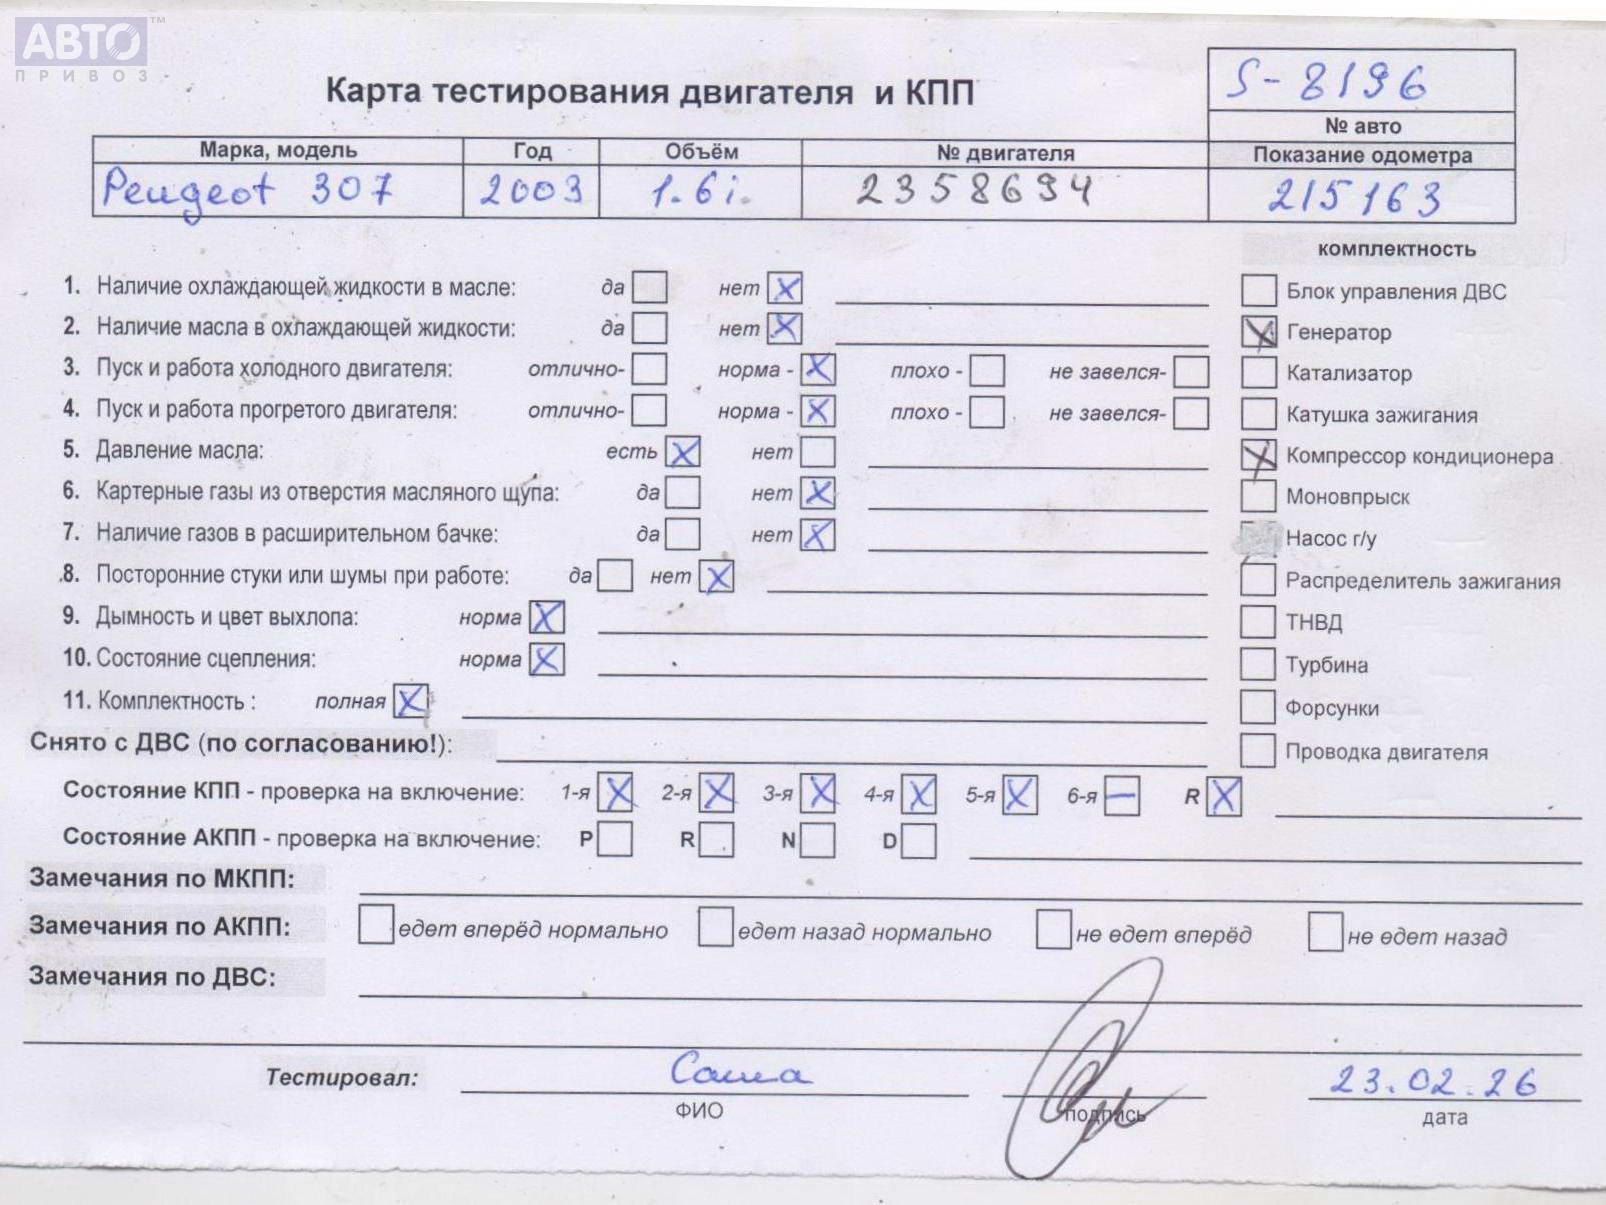 АВТО™
ПРИВОЗ
Карта тестирования двигателя и КПП
S-8196
№ авто
Марка, модель Год Объём № двигателя Показание одометра
Peugeot 307 2003 1.6i. 2358694 215163
комплектность
1. Наличие охлаждающей жидкости в масле: да нет X Блок управления ДВС
2. Наличие масла в охлаждающей жидкости: да нет X X Генератор
3. Пуск и работа холодного двигателя: отлично- норма - X плохо - не завелся- Катализатор
4. Пуск и работа прогретого двигателя: отлично- норма - X плохо - не завелся- Катушка зажигания
5. Давление масла: есть X нет X Компрессор кондиционера
6. Картерные газы из отверстия масляного щупа: да нет X Моновпрыск
7. Наличие газов в расширительном бачке: да нет X Насос г/у
8. Посторонние стуки или шумы при работе: да нет X Распределитель зажигания
9. Дымность и цвет выхлопа: норма X ТНВД
10. Состояние сцепления: норма X Турбина
11. Комплектность : полная X Форсунки
Снято с ДВС (по согласованию!): Проводка двигателя
Состояние КПП - проверка на включение: 1-я X 2-я X 3-я X 4-я X 5-я X 6-я — R X
Состояние АКПП - проверка на включение: P R N D
Замечания по МКПП:
Замечания по АКПП: едет вперёд нормально едет назад нормально не едет вперёд не едет назад
Замечания по ДВС:
Тестировал: Саша 23.02.26
ФИО подпись дата